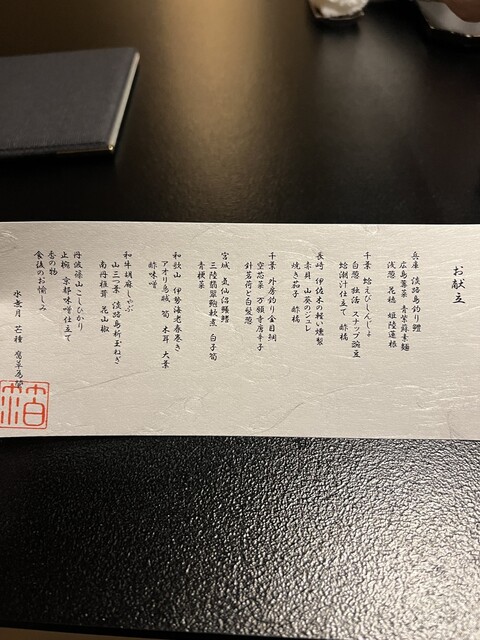 お献立
兵庫 淡路島釣り鱧
広島蓴菜 青紫蘇素麺
浅葱 花穂 姫陸蓮根
千葉 蛤えびしんじょ
白葱 独活 スナップ豌豆
蛤潮汁仕立て 酢橘
長崎 伊佐木の軽い燻製
赤貝 山葵のジュレ
焼き茄子 酢橘
千葉 外房釣り金目鯛
空芯菜 万願寺唐辛子
針茗荷と白髪葱
宮城 気仙沼鱶鰭
三陸翡翠鮑軟煮 白子筍
青梗菜
和歌山 伊勢海老春巻き
アオリ烏賊 筍 木耳 大葉
酢味噌
和牛胡麻しゃぶ
山三つ葉 淡路島新玉ねぎ
南丹椎茸 花山椒
丹波篠山こしひかり
止椀 京都味噌仕立て
香の物
食後のお愉しみ
水無月 芒種 腐草為螢